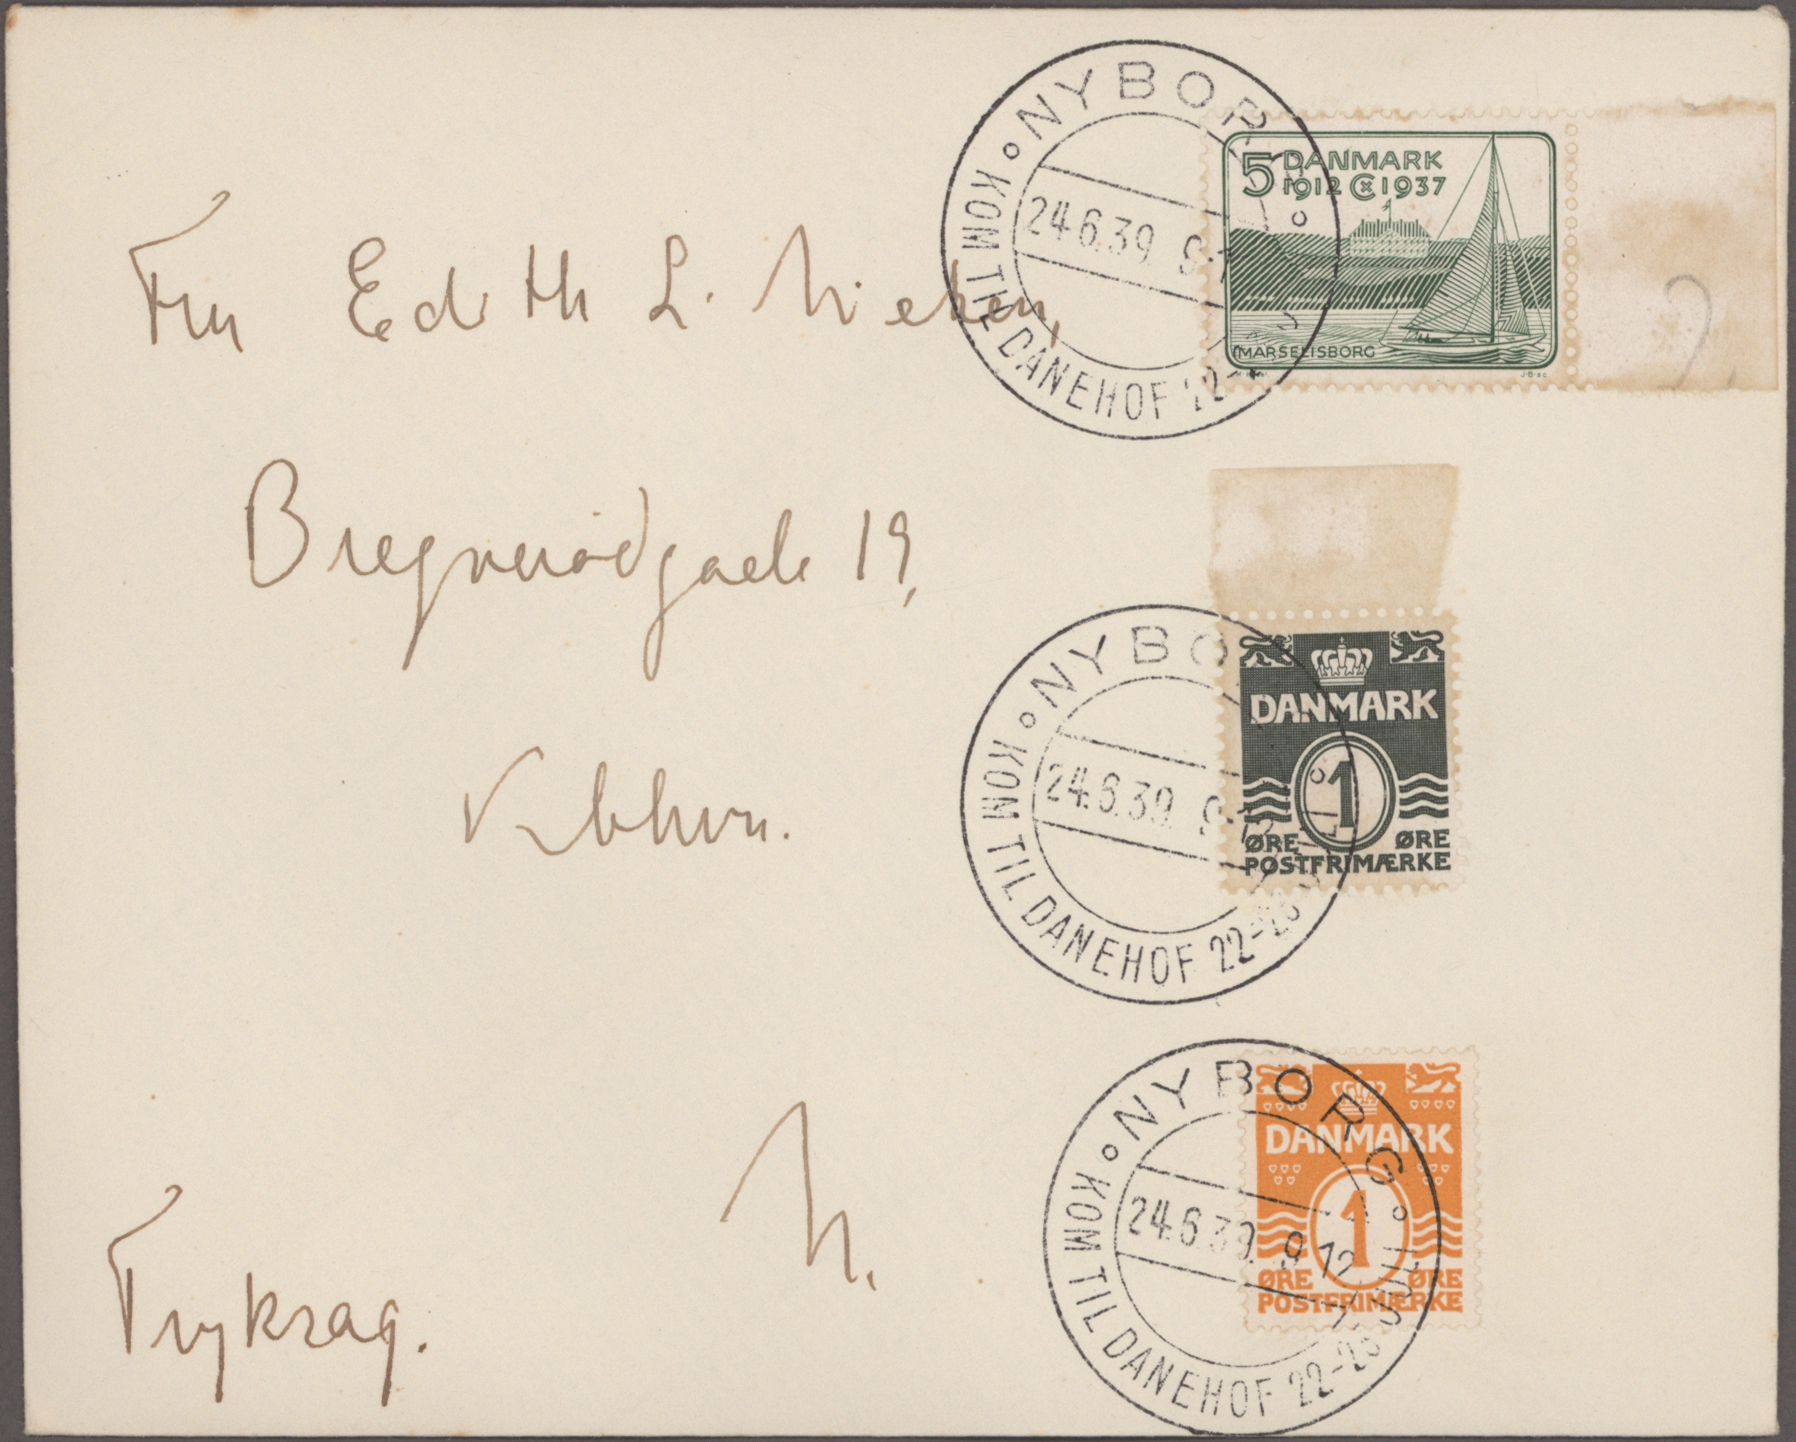 Fru Edith L. Nielsen,
Bregnerødgade 19,
Kbhvn.
N.
Tryksag.
NYBOR
24.6.39 9-1
KOM TIL DANEHOF 22-2
5 DANMARK
1912 CX 1937
MARSELISBORG
NYBO
24.6.39. 9-12
KOM TIL DANEHOF 22-23 JULI
DANMARK
1
ØRE ØRE
POSTFRIMÆRKE
NYBORG
24.6.39. 9-12
KOM TIL DANEHOF 22-23 JULI
DANMARK
1
ØRE ØRE
POSTFRIMÆRKE